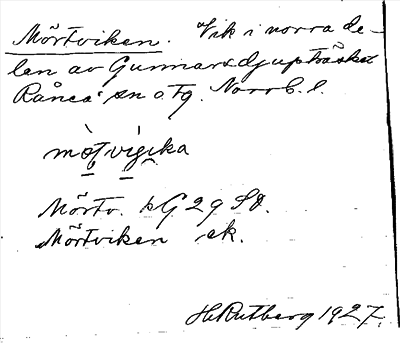 Mörtviken. Vik i norra de-
len av Gunnarsdjupträsket
Råneå sn o. tg. Norrb. l.
mö̀tvigika
Mörtv. bG 29 SO.
Mörtviken ek.
H. Rutberg 1927.